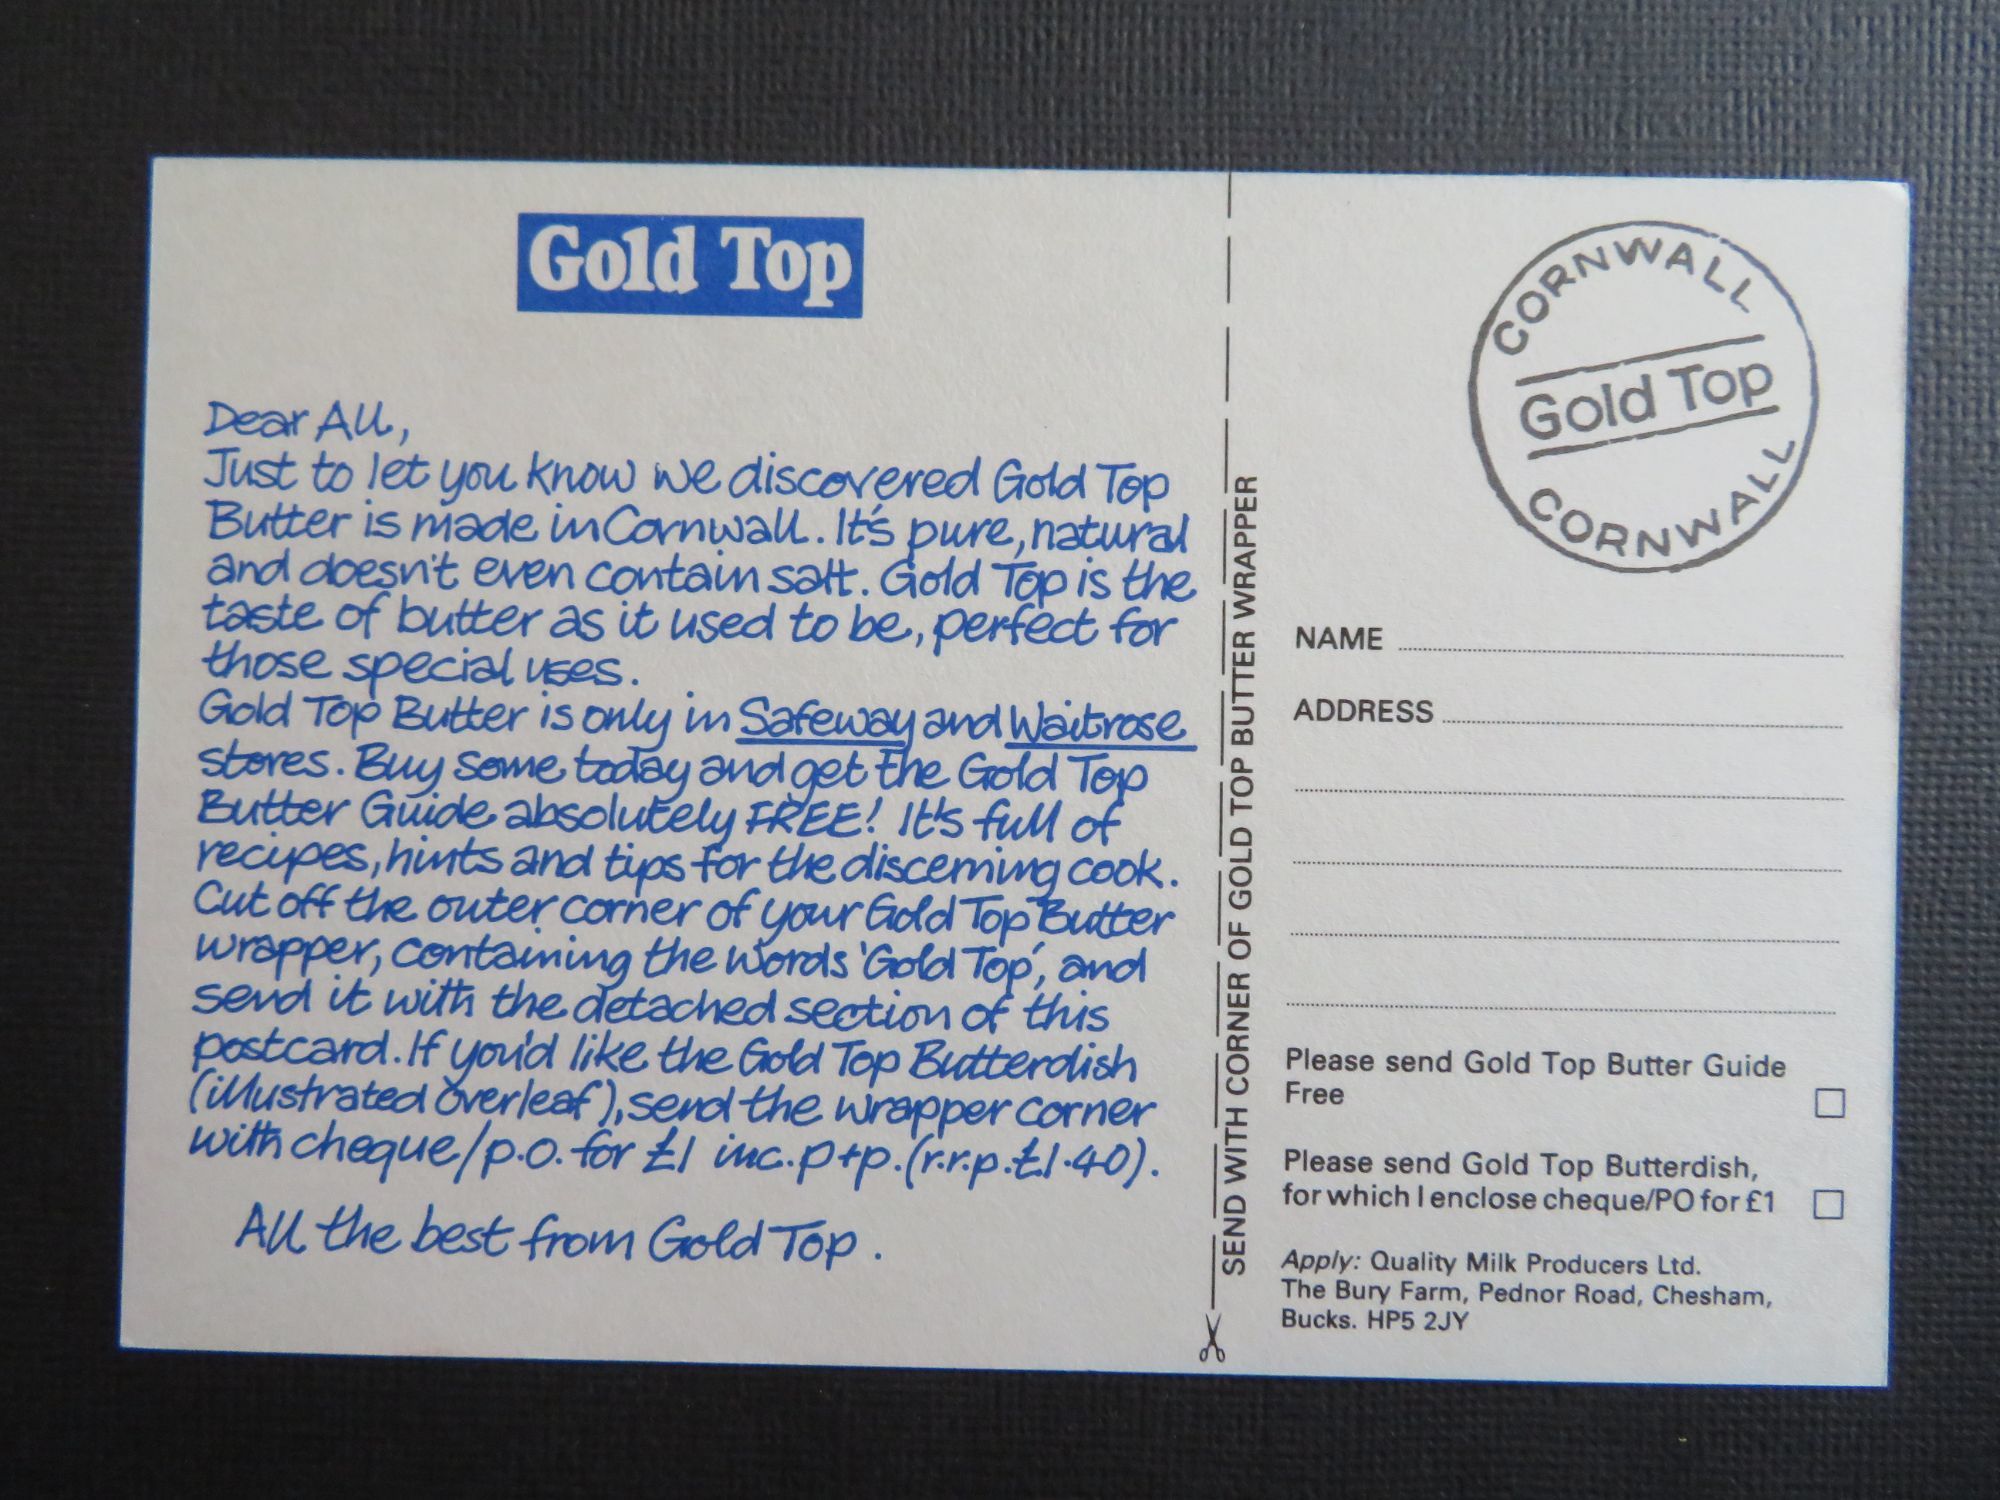 Gold Top
Dear All,
Just to let you know we discovered Gold Top
Butter is made in Cornwall. It's pure, natural
and doesn't even contain salt. Gold Top is the
taste of butter as it used to be, perfect for
those special uses.
Gold Top Butter is only in Safeway and Waitrose
stores. Buy some today and get the Gold Top
Butter Guide absolutely FREE! It's full of
recipes, hints and tips for the discerning cook.
Cut off the outer corner of your Gold Top Butter
wrapper, containing the words 'Gold Top', and
send it with the detached section of this
postcard. If you'd like the Gold Top Butterdish
(illustrated overleaf), send the wrapper corner
with cheque/p.o. for £1 inc. p+p. (r.r.p. £1.40).
All the best from Gold Top.
SEND WITH CORNER OF GOLD TOP BUTTER WRAPPER
CORNWALL
Gold Top
CORNWALL
NAME
ADDRESS
Please send Gold Top Butter Guide
Free
Please send Gold Top Butterdish,
for which I enclose cheque/PO for £1
Apply: Quality Milk Producers Ltd.
The Bury Farm, Pednor Road, Chesham,
Bucks. HP5 2JY